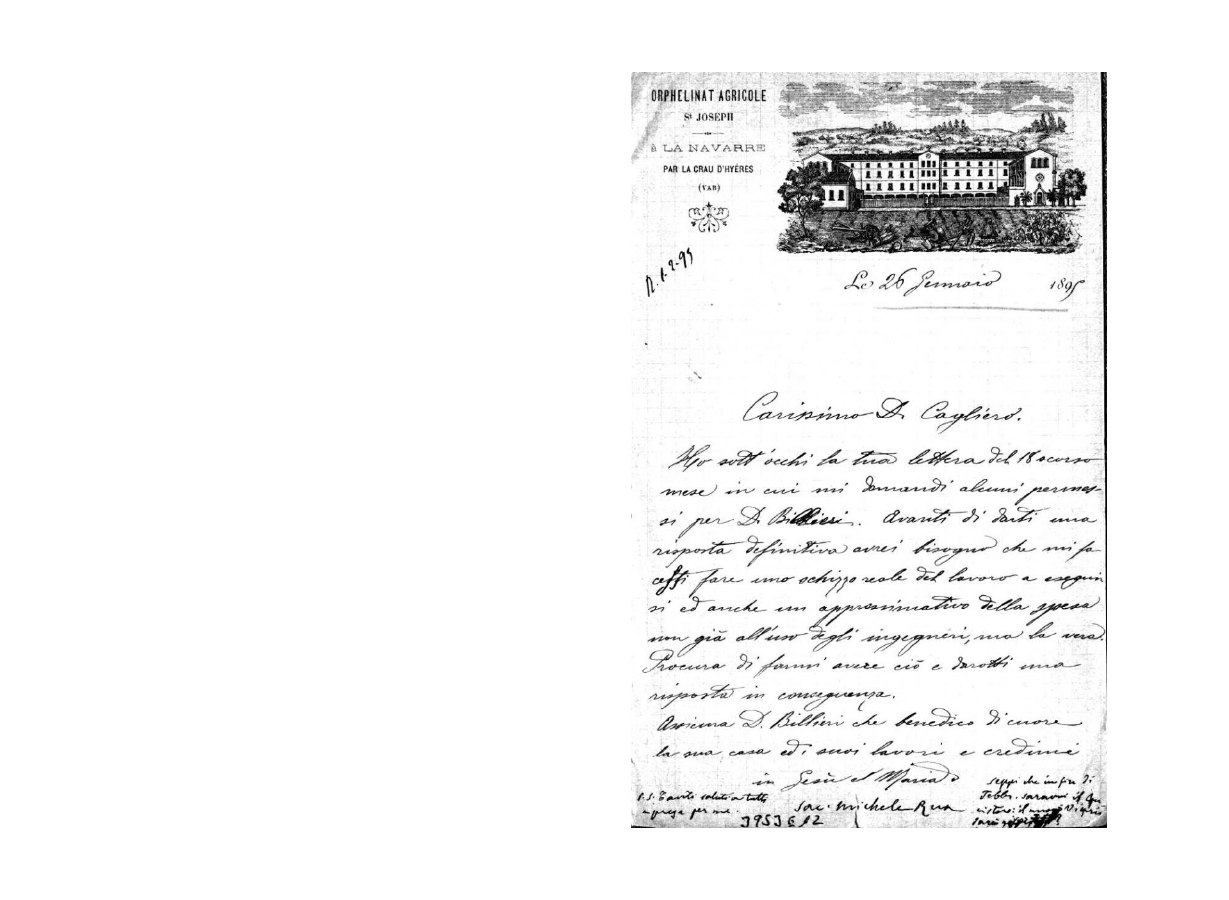 ORPHELINAT AGRICOLE
St JOSEPH
à LA NAVARRE
PAR LA CRAU D'HYÈRES
(VAR)
R. 1-2-95
Le 26 Gennaio 1895
Carissimo D. Cagliero.
Ho sott'occhi la tua lettera del 18 scorso
mese in cui mi domandi alcuni permes-
si per D. Billieri. Avanti di darti una
risposta definitiva avrei bisogno che mi fa
cessi fare uno schizzo reale del lavoro a eseguir
si ed anche un approssimativo della spesa
non già all'uso degli ingegneri, ma la vera.
Procura di farmi avere ciò e darotti una
risposta in conseguenza.
Assicura D. Billieri che benedico di cuore
la sua casa ed i suoi lavori e credimi
in Gesù e Maria
Sac. Michele Rua
P.S. Tanti saluti a tutti
e prega per me.
seppi che in fin di
Febbr. saranno il
3953 E 12